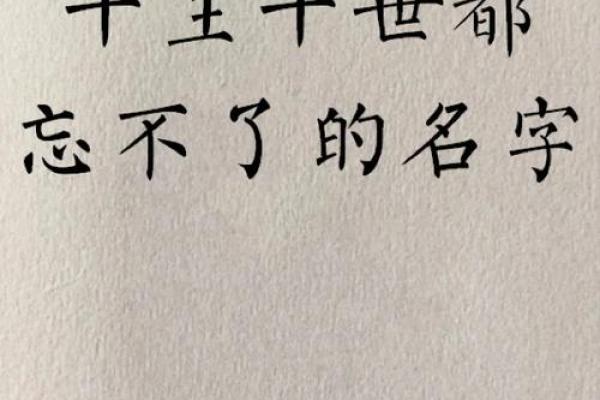 千生千世都
忘不了的名字